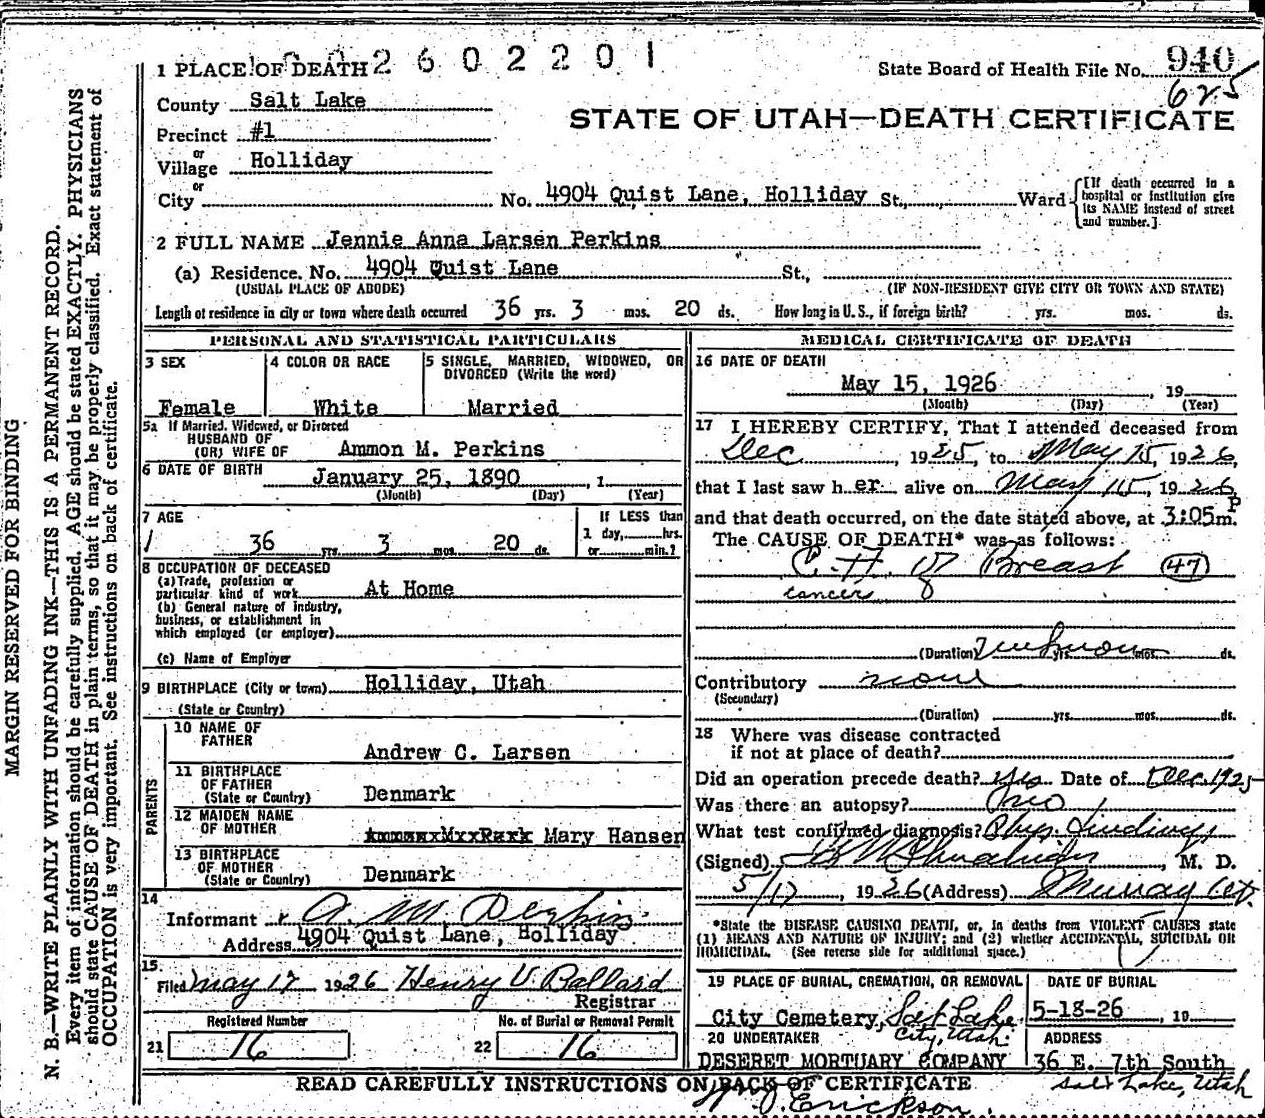 MARGIN RESERVED FOR BINDING
N. B.—WRITE PLAINLY WITH UNFADING INK—THIS IS A PERMANENT RECORD.
Every item of information should be carefully supplied. AGE should be stated EXACTLY. PHYSICIANS
should state CAUSE OF DEATH in plain terms, so that it may be properly classified. Exact statement of
OCCUPATION is very important. See instructions on back of certificate.
2602201
1 PLACE OF DEATH
State Board of Health File No. 940
625
County Salt Lake
STATE OF UTAH—DEATH CERTIFICATE
Precinct #1
or
Village Holliday
or
City No. 4904 Quist Lane, Holliday St., Ward
[If death occurred in a
hospital or institution give
its NAME instead of street
and number.]
2 FULL NAME Jennie Anna Larsen Perkins
(a) Residence. No. 4904 Quist Lane St.,
(USUAL PLACE OF ABODE) (IF NON-RESIDENT GIVE CITY OR TOWN AND STATE)
Length of residence in city or town where death occurred 36 yrs. 3 mos. 20 ds. How long in U. S., if foreign birth? yrs. mos. ds.
PERSONAL AND STATISTICAL PARTICULARS
3 SEX
Female
4 COLOR OR RACE
White
5 SINGLE, MARRIED, WIDOWED, OR
DIVORCED (Write the word)
Married
5a If Married, Widowed, or Divorced
HUSBAND OF
(OR) WIFE OF Ammon M. Perkins
6 DATE OF BIRTH January 25, 1890 , 1
(Month) (Day) (Year)
7 AGE
36 yrs. 3 mos. 20 ds.
If LESS than
1 day, hrs.
or min.?
8 OCCUPATION OF DECEASED
(a) Trade, profession or
particular kind of work At Home
(b) General nature of industry,
business, or establishment in
which employed (or employer)
(c) Name of Employer
9 BIRTHPLACE (City or town) Holliday, Utah
(State or Country)
PARENTS
10 NAME OF
FATHER
Andrew C. Larsen
11 BIRTHPLACE
OF FATHER
(State or Country) Denmark
12 MAIDEN NAME
OF MOTHER Mary Hansen
13 BIRTHPLACE
OF MOTHER
(State or Country) Denmark
14
Informant A. M. Perkins
Address 4904 Quist Lane, Holliday
15
Filed May 17 1926 Henry V. Ballard
Registrar
Registered Number No. of Burial or Removal Permit
21 16 22 16
MEDICAL CERTIFICATE OF DEATH
16 DATE OF DEATH
May 15, 1926 , 19
(Month) (Day) (Year)
17 I HEREBY CERTIFY, That I attended deceased from
Dec , 1925, to May 15, 1926,
that I last saw her alive on May 15, 1926,
and that death occurred, on the date stated above, at 3:05 P m.
The CAUSE OF DEATH* was as follows:
of Breast (47)
cancers
(Duration) unknown yrs. mos. ds.
Contributory none
(Secondary)
(Duration) yrs. mos. ds.
18 Where was disease contracted
if not at place of death?
Did an operation precede death? Yes Date of Dec 1925
Was there an autopsy? no
What test confirmed diagnosis? Phys. findings
(Signed) , M. D.
5/17, 1926 (Address) Murray Ut.
*State the DISEASE CAUSING DEATH, or, in deaths from VIOLENT CAUSES state
(1) MEANS AND NATURE OF INJURY; and (2) whether ACCIDENTAL, SUICIDAL OR
HOMICIDAL. (See reverse side for additional space.)
19 PLACE OF BURIAL, CREMATION, OR REMOVAL
City Cemetery, Salt Lake
City, Utah.
DATE OF BURIAL
5-18-26 , 19
20 UNDERTAKER
DESERET MORTUARY COMPANY
ADDRESS
36 E. 7th South
Salt Lake, Utah
READ CAREFULLY INSTRUCTIONS ON BACK OF CERTIFICATE
Erickson